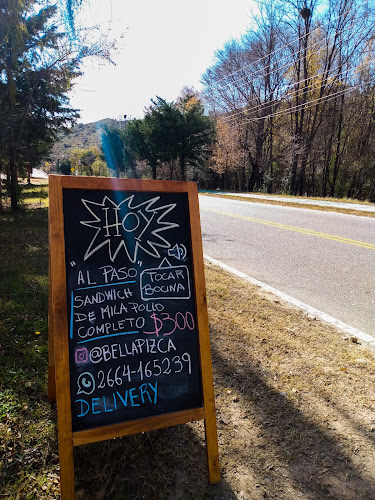 HOY
"AL PASO"
TOCAR
BOCINA
SANDWICH
DE MILA POLLO
COMPLETO $300
@BELLAPIZCA
2664-165239
DELIVERY